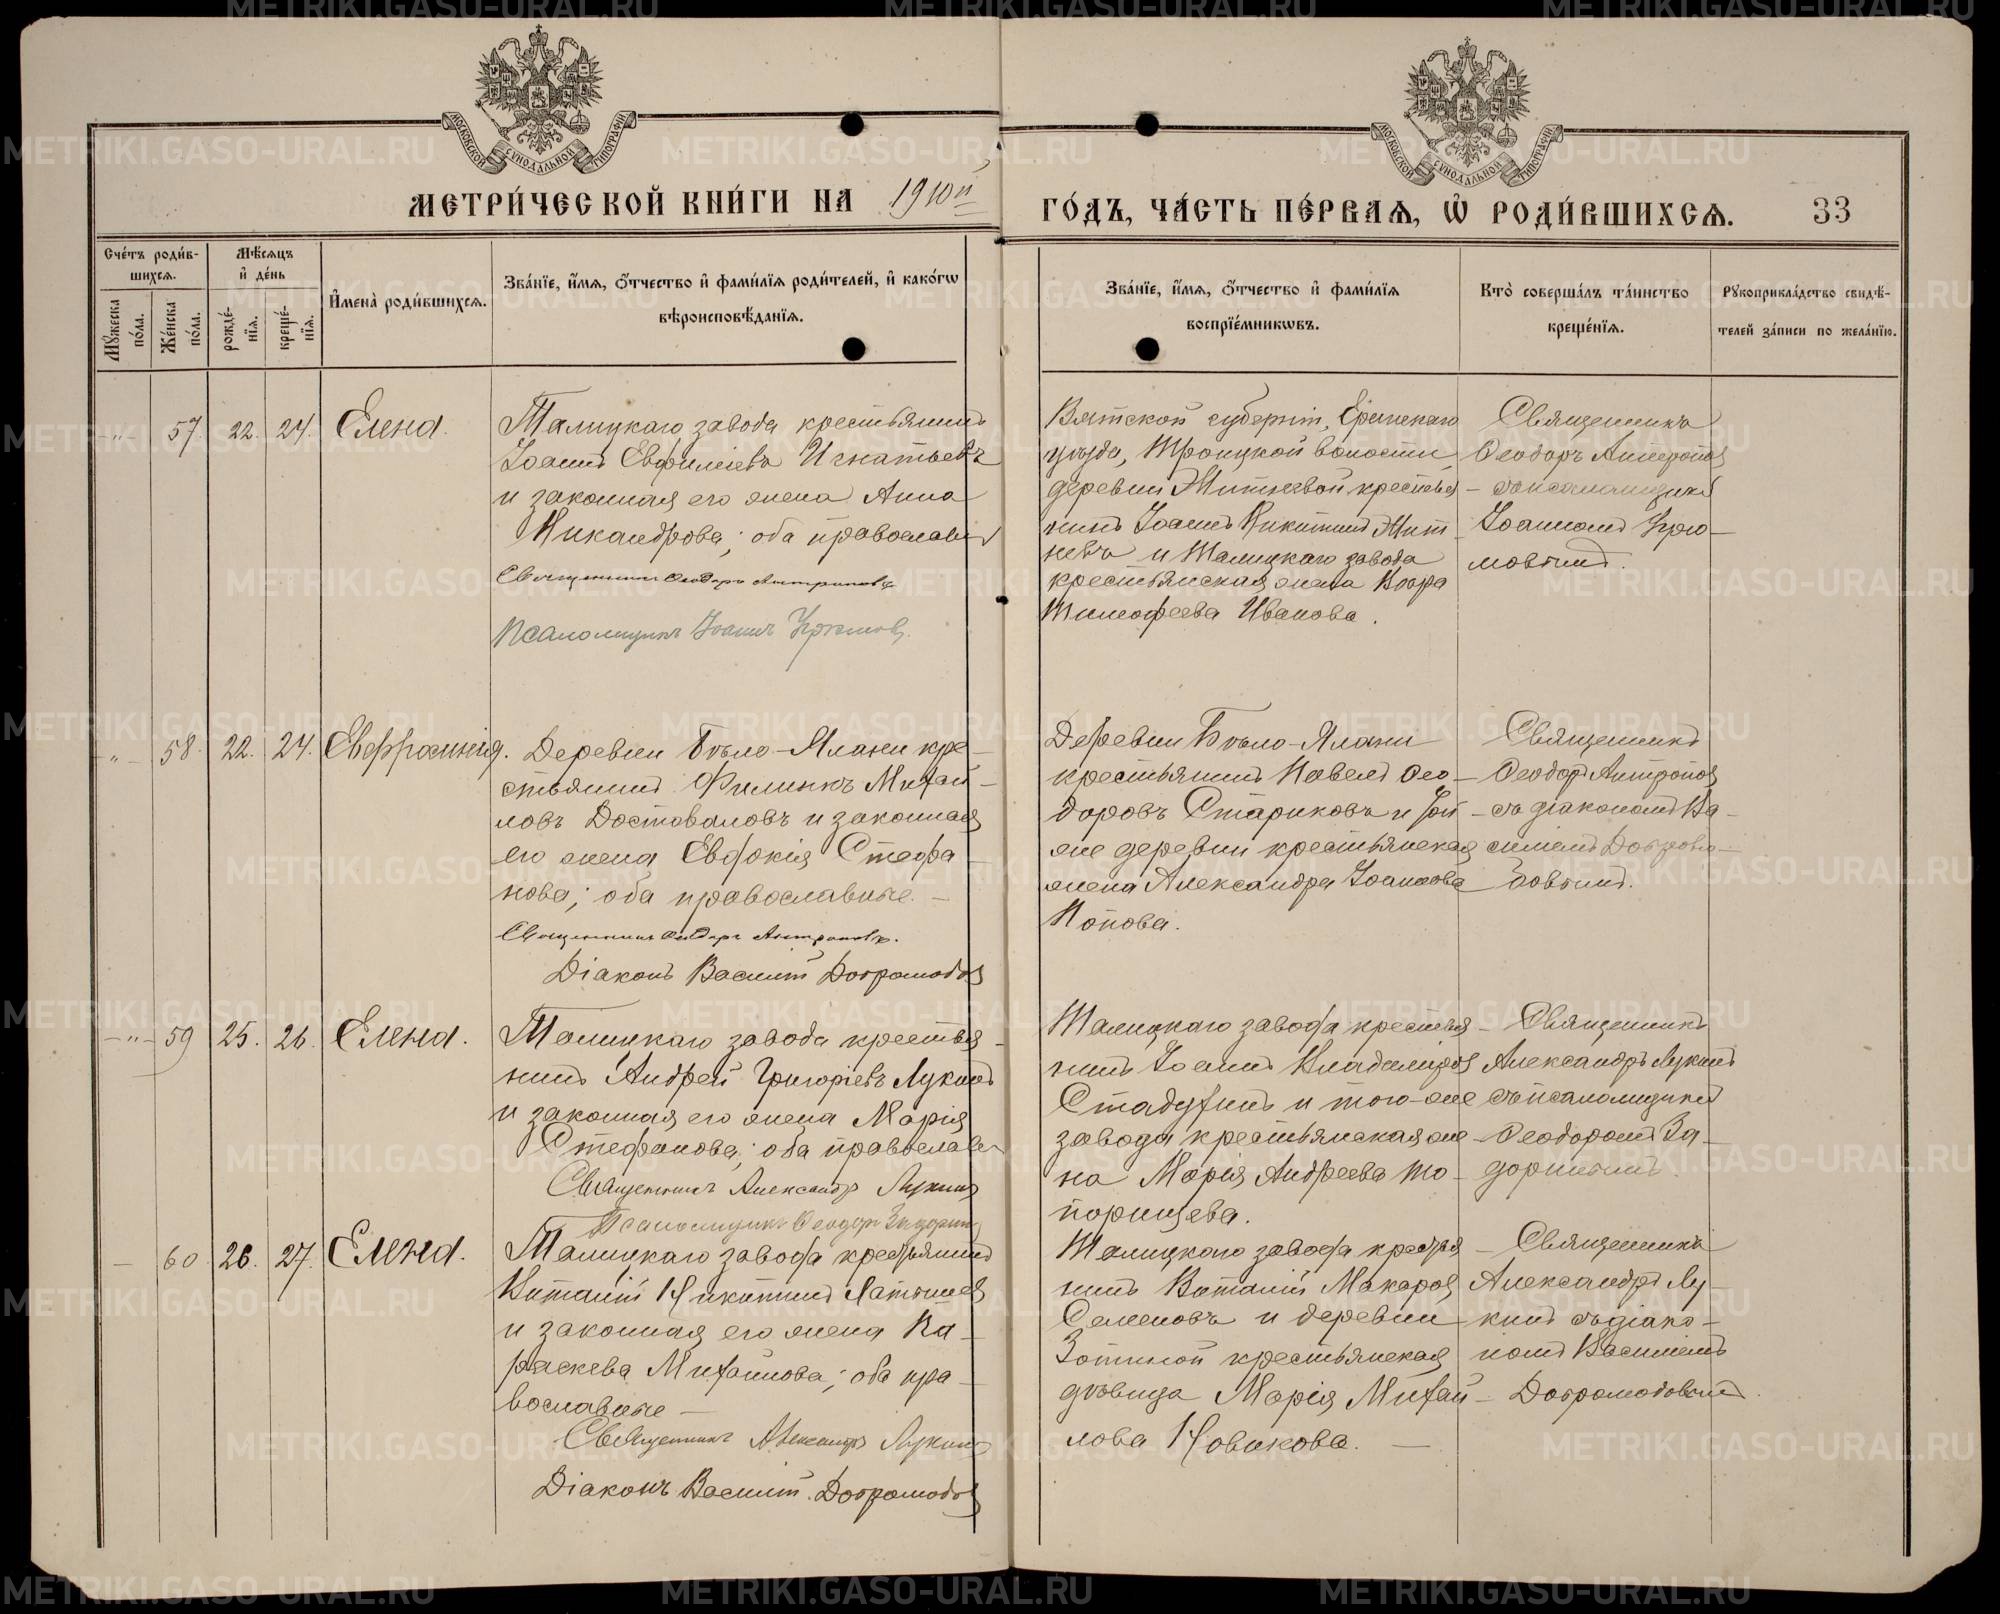 МОСКОВСКОЙ СУНОДАЛЬНОЙ ТИПОГРАФИИ
МОСКОВСКОЙ СУНОДАЛЬНОЙ ТИПОГРАФИИ
МЕТРИ́ЧЕСКОЙ КНИ́ГИ НА 1910й
ГО́ДЪ, ЧА́СТЬ ПЕ́РВАѦ, Ѡ҆ РОДИ́ВШИХСѦ. 33
Сче́тъ роди́в-
шихсѧ.
Мꙋ́жеска по́ла.
Же́нска по́ла.
Мѣ́сѧцъ
и҆ де́нь
рожде́-
нїѧ.
креще́-
нїѧ.
И҆мена̀ роди́вшихсѧ.
Зва́нїе, и҆́мѧ, ѻ҆́тчество и҆ фами́лїѧ роди́телей, и҆ како́гѡ
вѣроисповѣ́данїѧ.
Зва́нїе, и҆́мѧ, ѻ҆́тчество и҆ фами́лїѧ
воспрїе́мникѡвъ.
Кто̀ соверша́лъ та́инство
креще́нїѧ.
Рꙋкоприкла́дство свидѣ́-
телей за́писи по жела́нїю.
-"- 57. 22. 24. Елена.
Талицкаго завода крестьянинъ
Іоаннъ Евфиміевъ Игнатьевъ
и законная его жена Анна
Никандрова; оба православн
Священникъ Ѳеодоръ Антроповъ
Псаломщикъ Іоаннъ
Вятской губерніи,
уѣзда, Троицкой волости,
деревни крестья
нинъ Іоаннъ Никитинъ
и Талицкаго завода
крестьянская жена Вѣра
Тимофеева Иванова.
Священникъ
Ѳеодоръ Антропов
съ псаломщикомъ
Іоанномъ
-"- 58. 22. 24. Евфросинія.
Деревни Бѣло-Елани кре-
стьянинъ Филиппъ Михай-
ловъ Достоваловъ и законная
его жена Евдокія Стефа-
нова; оба православные. -
Священникъ Ѳеодоръ Антроповъ.
Діаконъ Василій Добромодов
Деревни Бѣло-Елани
крестьянинъ Павелъ Ѳео-
доровъ Стариковъ и той-
же деревни крестьянская
жена Александра Іоаннова
Попова.
Священникъ
Ѳеодоръ Антропов
съ діакономъ Ва-
силіемъ Добромо-
довымъ.
-"- 59 25. 26. Елена.
Талицкаго завода крестья-
нинъ Андрей Григоріевъ Лукинъ
и законная его жена Марія
Стефанова; оба православн
Священникъ Александръ Лукинъ
Псаломщикъ Ѳеодоръ Задорин
Талицкаго завода крестья-
нинъ Іоаннъ Владиміров
Стадухинъ и того-же
завода крестьянская же-
на Марія Андреева То-
порищева.
Священникъ
Александръ Лукинъ
съ псаломщикомъ
Ѳеодоромъ За-
доринымъ.
- 60 26. 27. Елена.
Талицкаго завода крестьянинъ
Виталій Никитинъ Латышев
и законная его жена Па-
раскева Михайлова; оба пра-
вославные -
Священникъ Александръ Лукинъ
Діаконъ Василій Добромодов
Талицкаго завода крестья-
нинъ Виталій Макаров
Семеновъ и деревни
Зотиной крестьянская
дѣвица Марія Михай-
лова Новикова. -
Священникъ
Александръ Лу-
кинъ съ діако-
номъ Василіемъ
Добромодовымъ.
METRIKI.GASO-URAL.RU